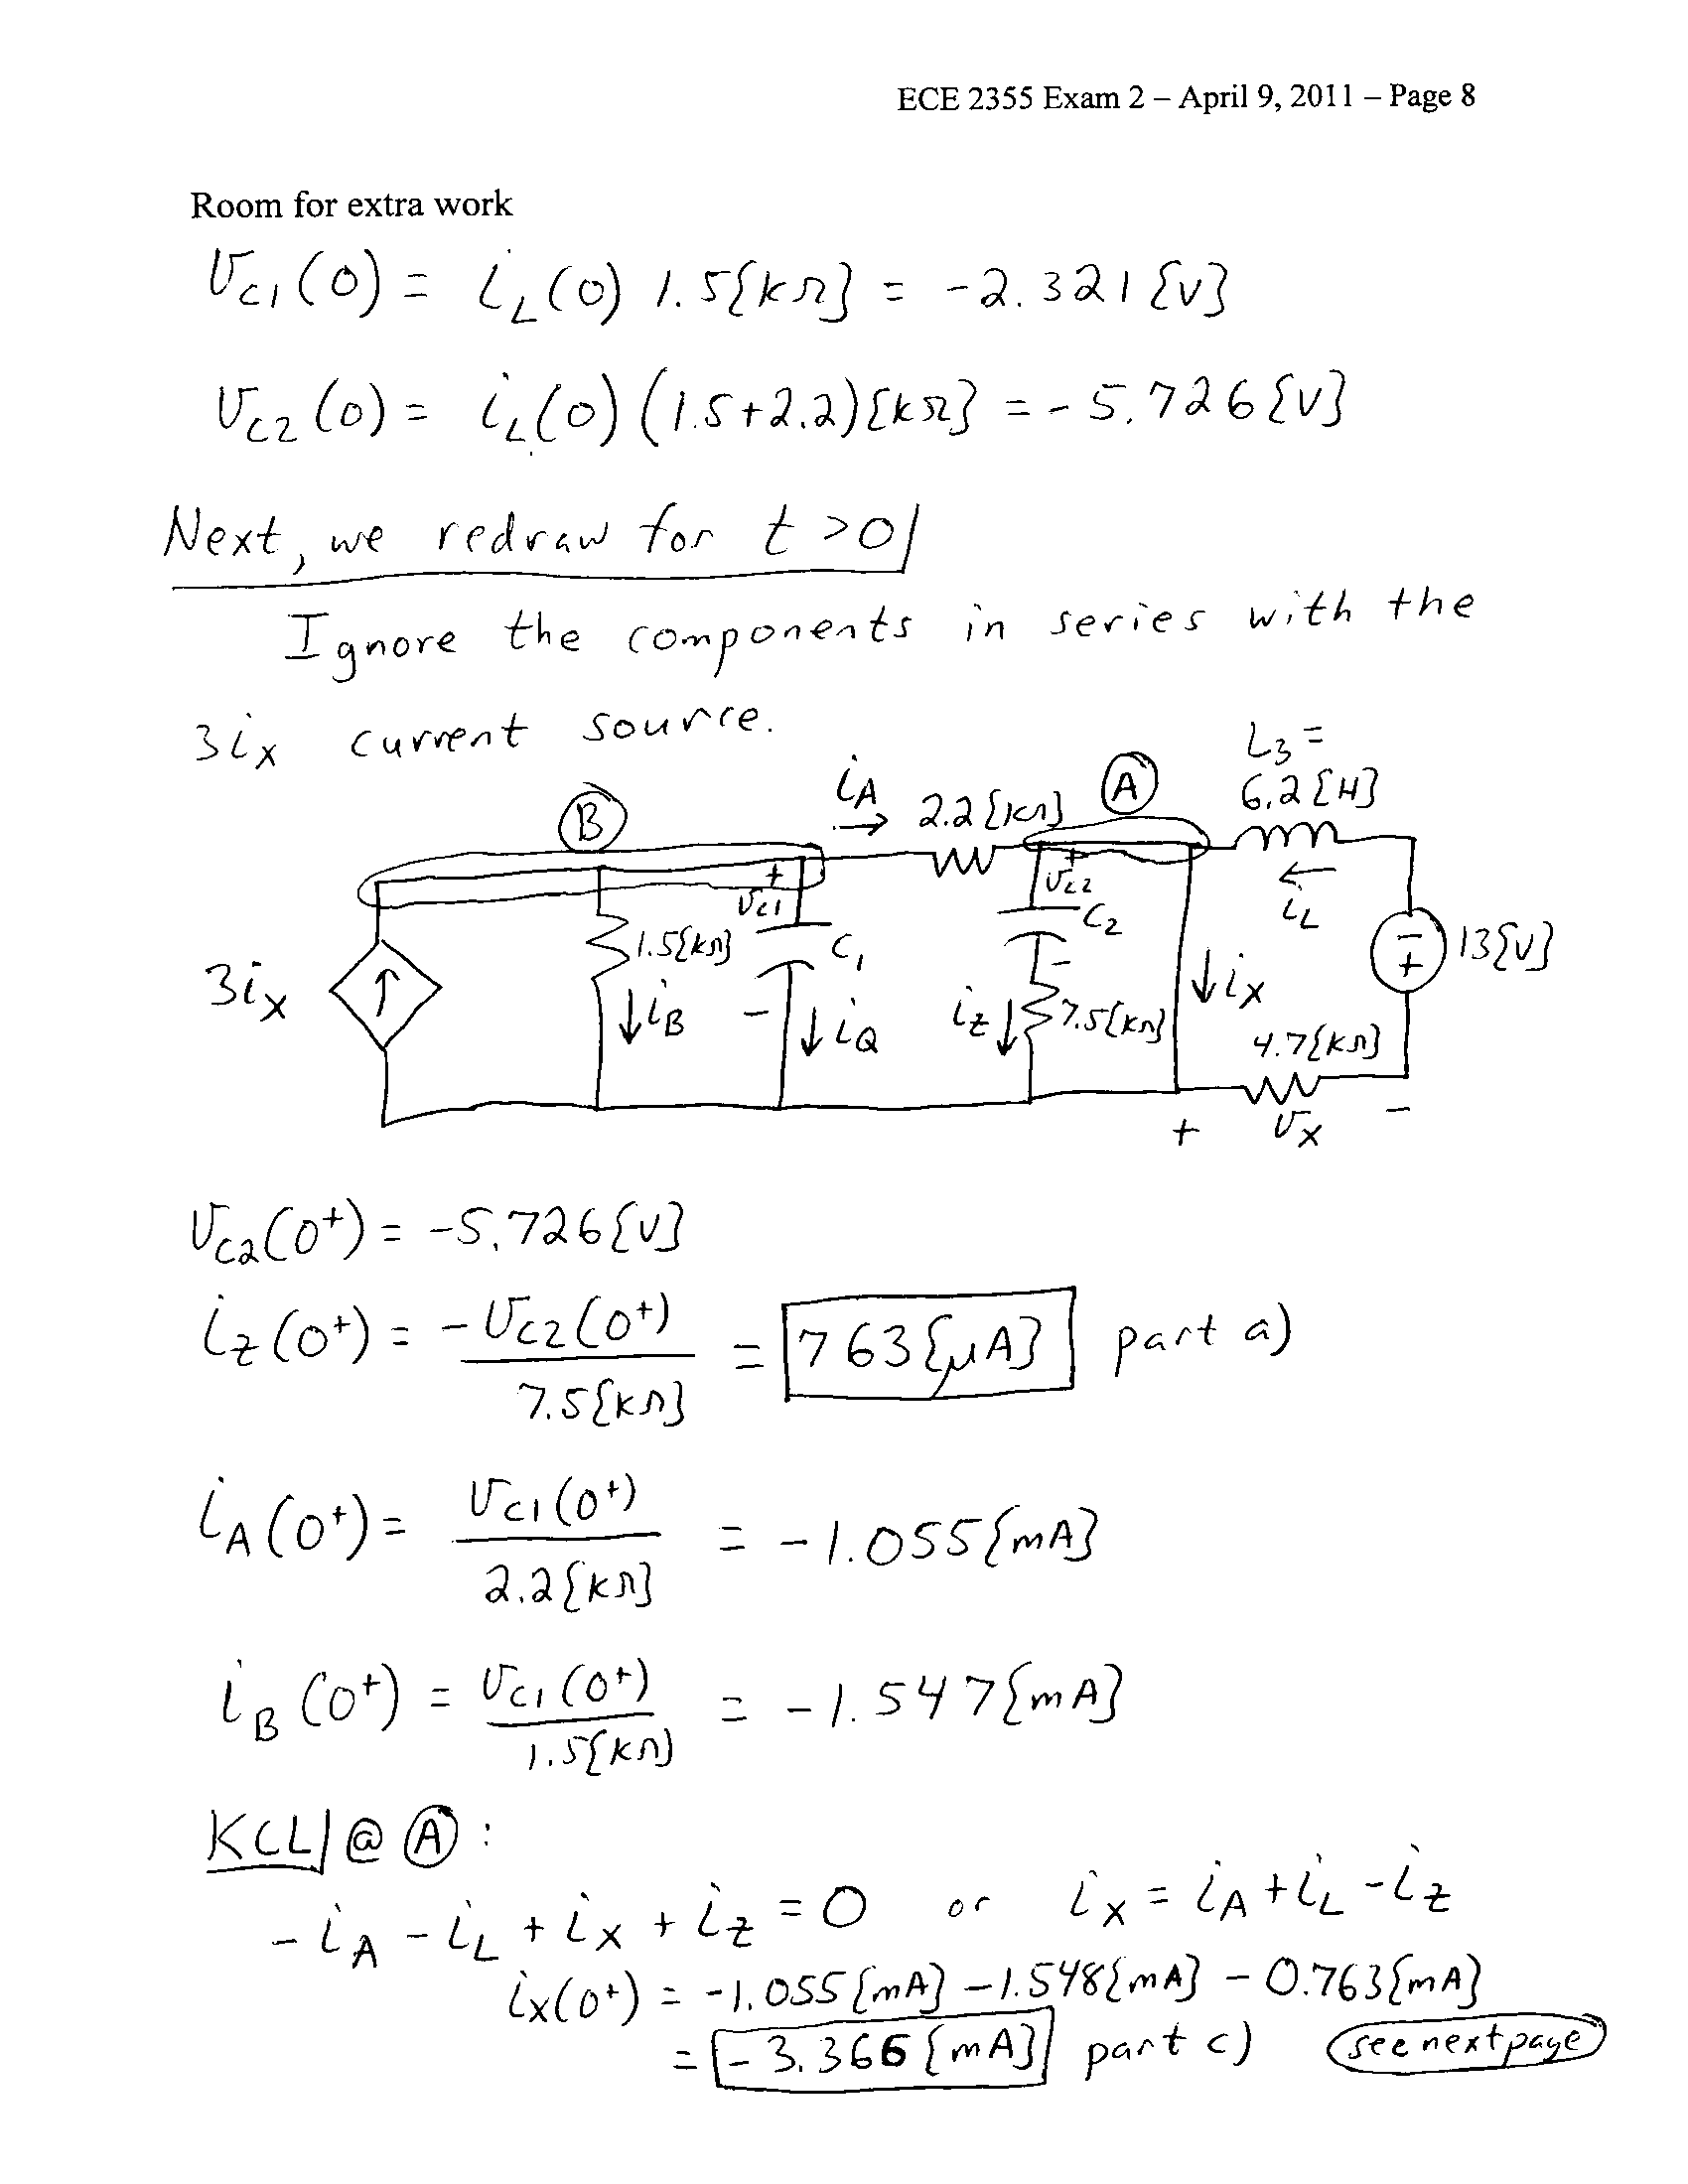 ECE 2355 Exam 2 – April 9, 2011 – Page 8
Room for extra work
v_C1(0) = i_L(0) 1.5{kΩ} = -2.321{V}
v_C2(0) = i_L(0)(1.5+2.2){kΩ} = -5.726{V}
Next, we redraw for t>0
Ignore the components in series with the
3i_X current source.
L_3 =
6.2{H}
i_A
2.2{kΩ}
A
B
+
v_C1
+
v_C2
C_2
i_L
1.5{kΩ}
C_1
-
-
+
13{V}
3i_X
i_B
-
i_Q
i_Z
7.5{kΩ}
i_X
4.7{kΩ}
+
v_X
-
v_C2(0⁺) = -5.726{V}
i_Z(0⁺) = -v_C2(0⁺) / 7.5{kΩ} = 763{μA} part a)
i_A(0⁺) = v_C1(0⁺) / 2.2{kΩ} = -1.055{mA}
i_B(0⁺) = v_C1(0⁺) / 1.5{kΩ} = -1.547{mA}
KCL @ A :
-i_A - i_L + i_X + i_Z = 0 or i_X = i_A + i_L - i_Z
i_X(0⁺) = -1.055{mA} -1.548{mA} - 0.763{mA}
= -3.366{mA} part c) see next page